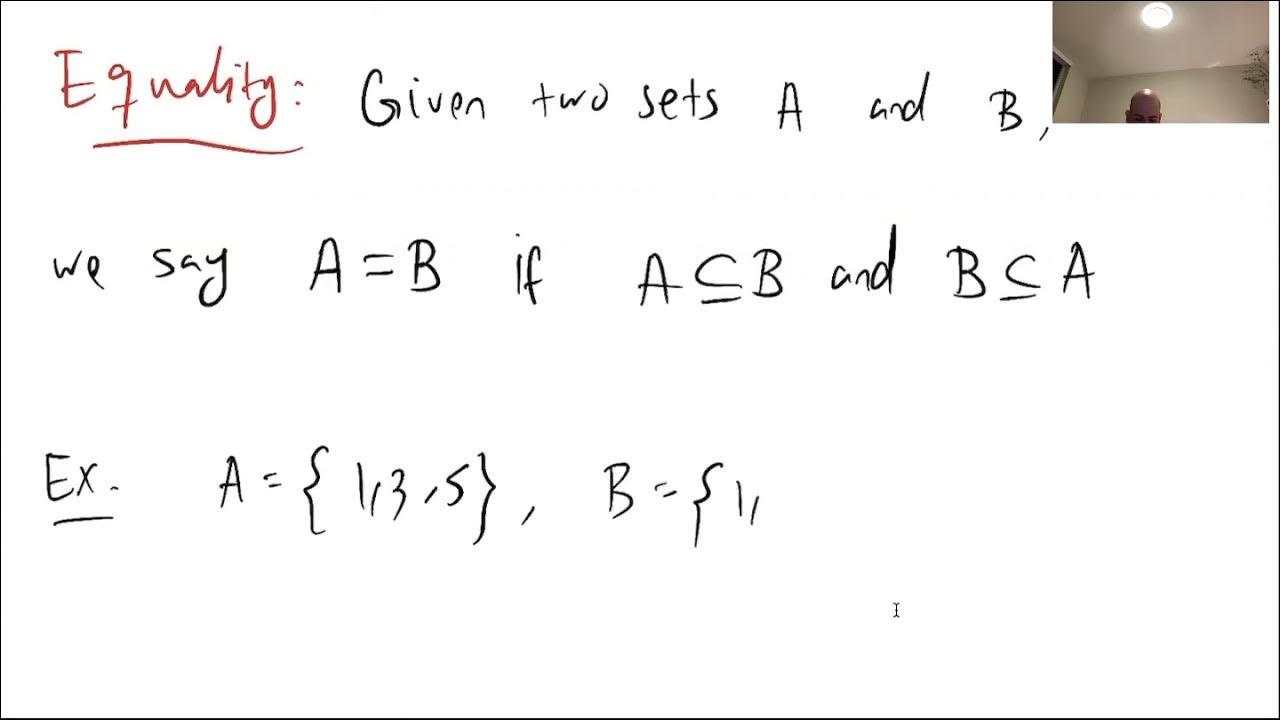 Equality: Given two sets A and B,
we say A = B if A ⊆ B and B ⊆ A
Ex. A = { 1, 3, 5 }, B = { 1,